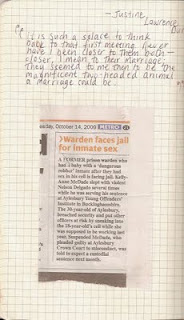 — Justine
Lawrence
It is such a solace to think
back to that first meeting. Never
have I been closer to them both —
closer, I mean to their marriage;
They seemed to me then to be the
magnificent two-headed animal
a marriage could be.
day, October 14, 2009 METRO
Warden faces jail
for inmate sex
A FORMER prison warden who
had a baby with a 'dangerous
robber' inmate after they had
sex in his cell is facing jail. Kelly-
Anne McDade slept with violent
Nelson Delgado several times
while he was serving his sentence
at Aylesbury Young Offenders'
Institute in Buckinghamshire.
The 30-year-old of Aylesbury,
breached security and put other
officers at risk by sneaking into
the 18-year-old's cell while she
was supposed to be working last
year. Suspended McDade, who
pleaded guilty at Aylesbury
Crown Court to misconduct, was
told to expect a custodial
sentence next month.